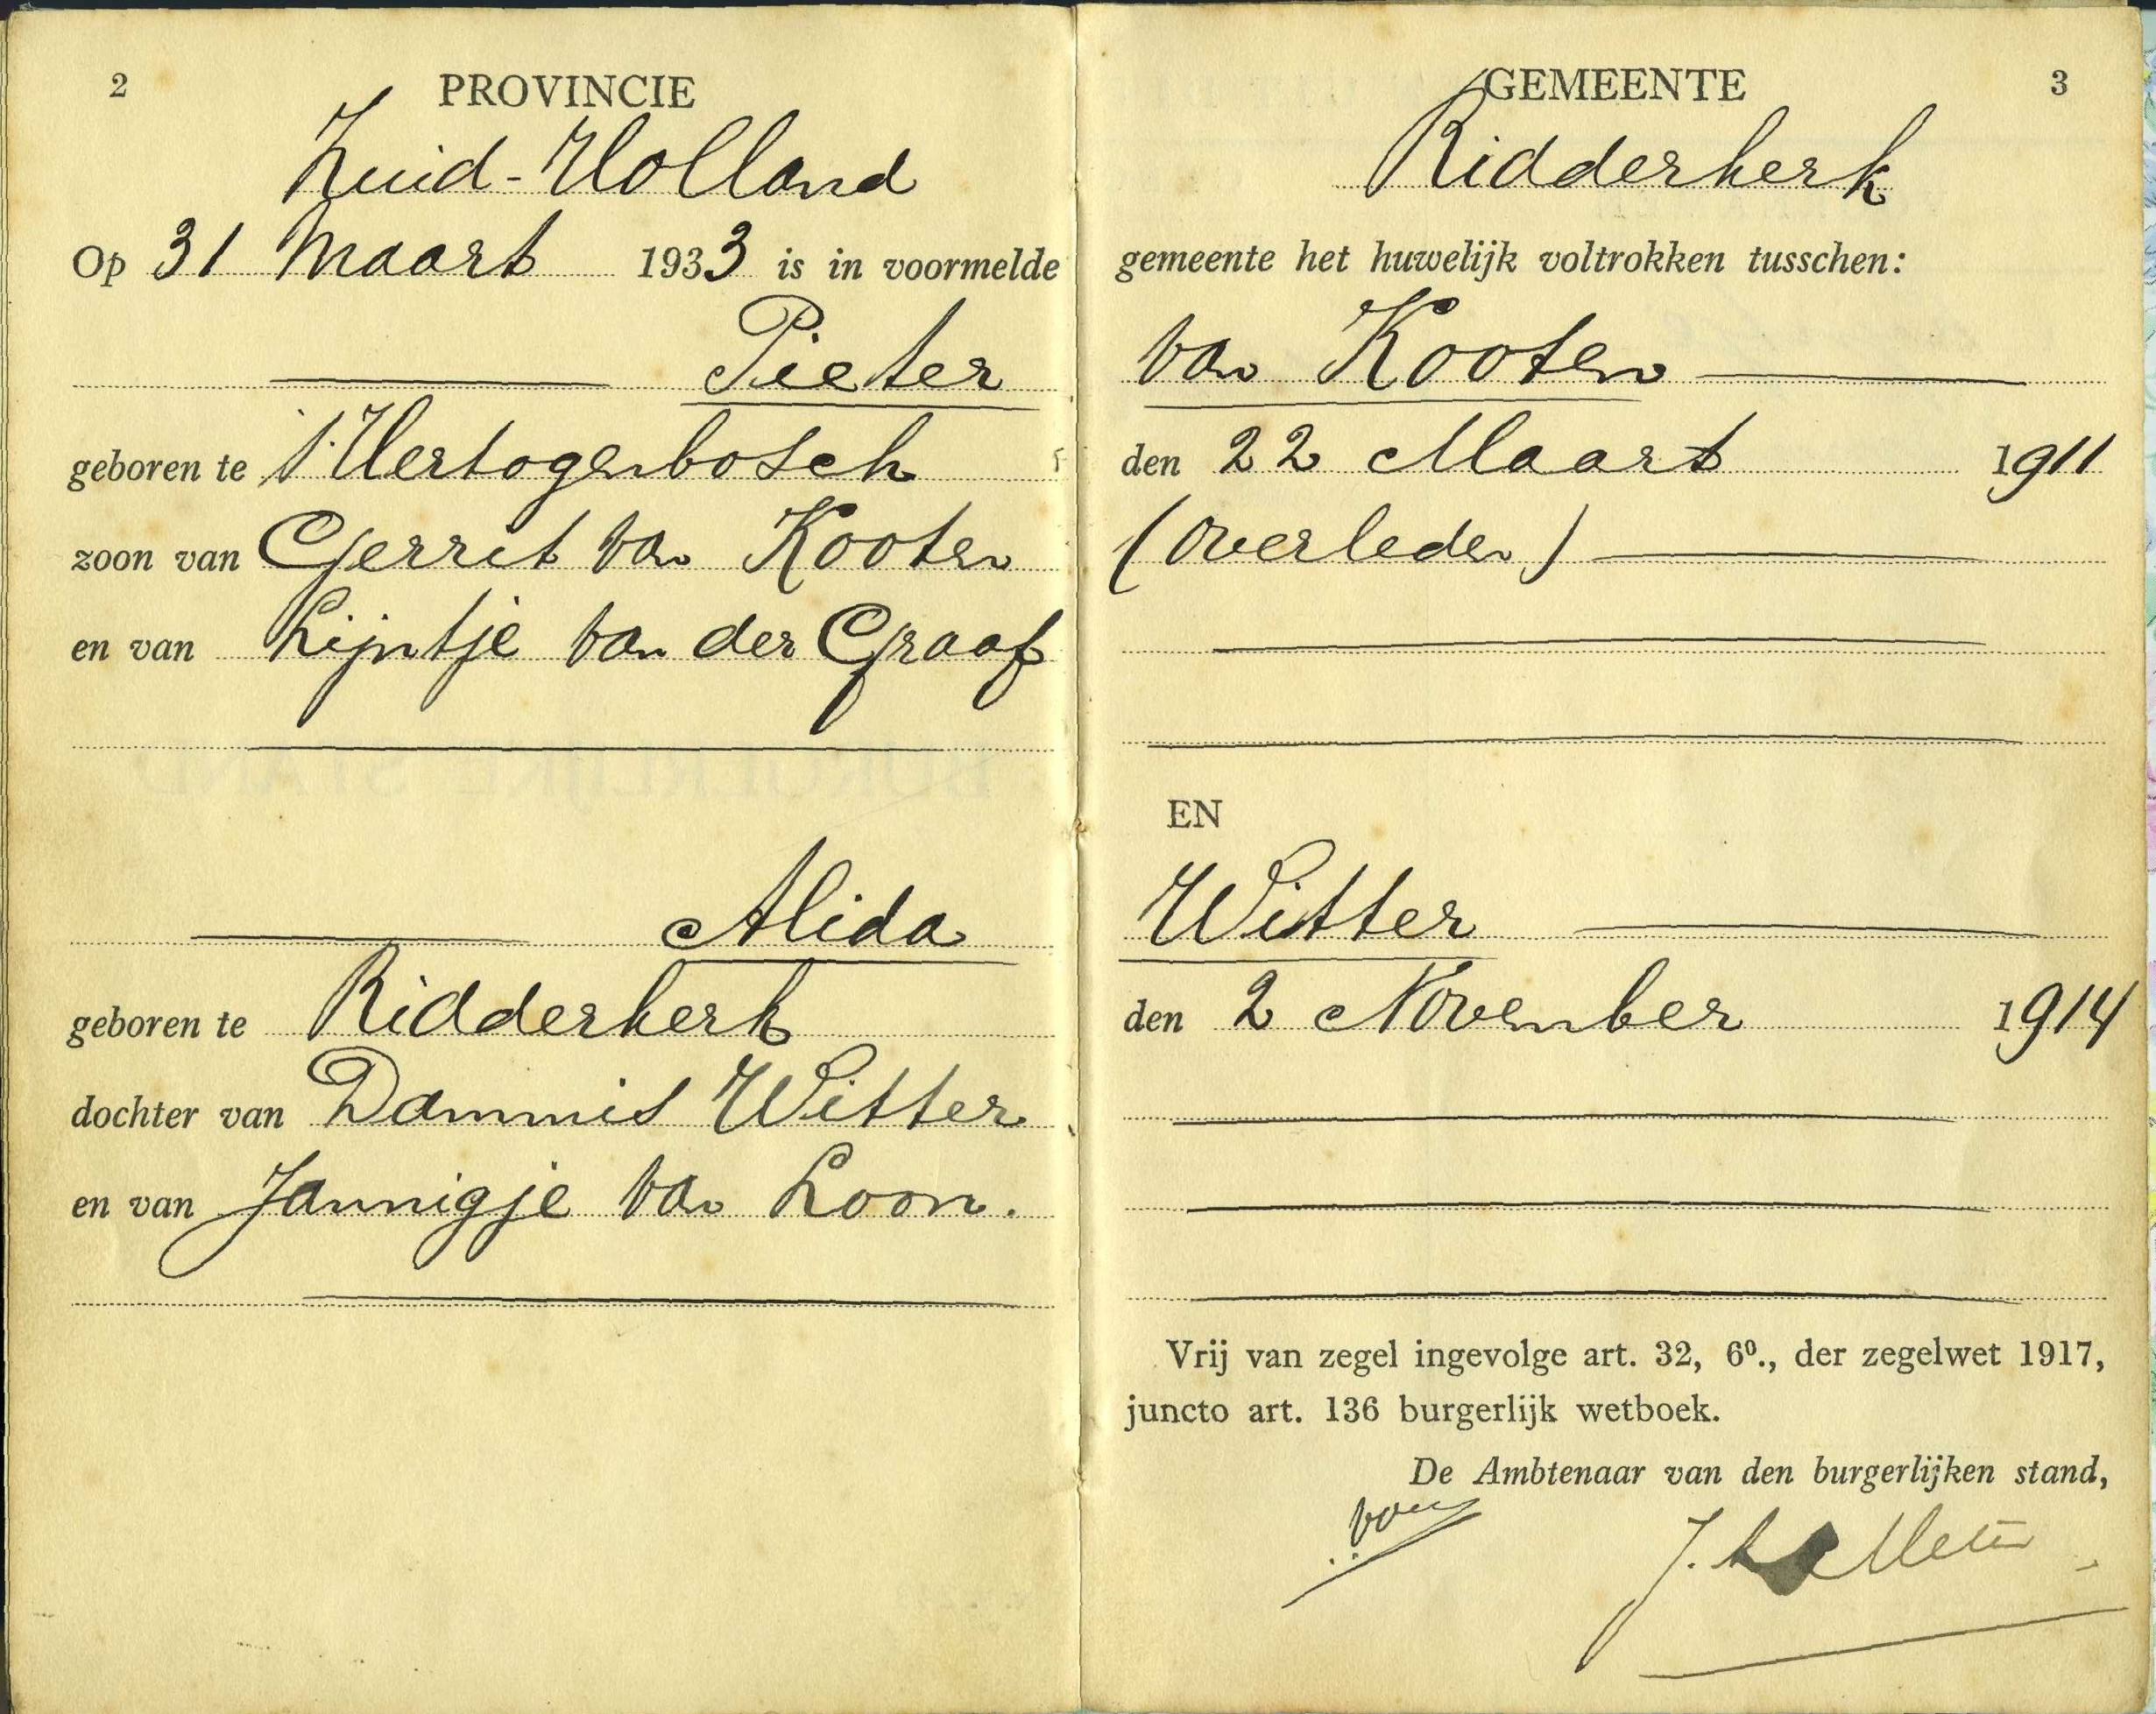 2
PROVINCIE
Zuid-Holland
Op 31 Maart 1933 is in voormelde
Pieter
geboren te 's Hertogenbosch
zoon van Gerrit van Kooten
en van Lijntje van der Graaf
Alida
geboren te Ridderkerk
dochter van Dammis Witter
en van Jannigje van Loon.
GEMEENTE
3
Ridderkerk
gemeente het huwelijk voltrokken tusschen:
van Kooten
den 22 Maart 1911
(overleden)
EN
Witter
den 2 November 1914
Vrij van zegel ingevolge art. 32, 6º., der zegelwet 1917,
juncto art. 136 burgerlijk wetboek.
De Ambtenaar van den burgerlijken stand,
J.